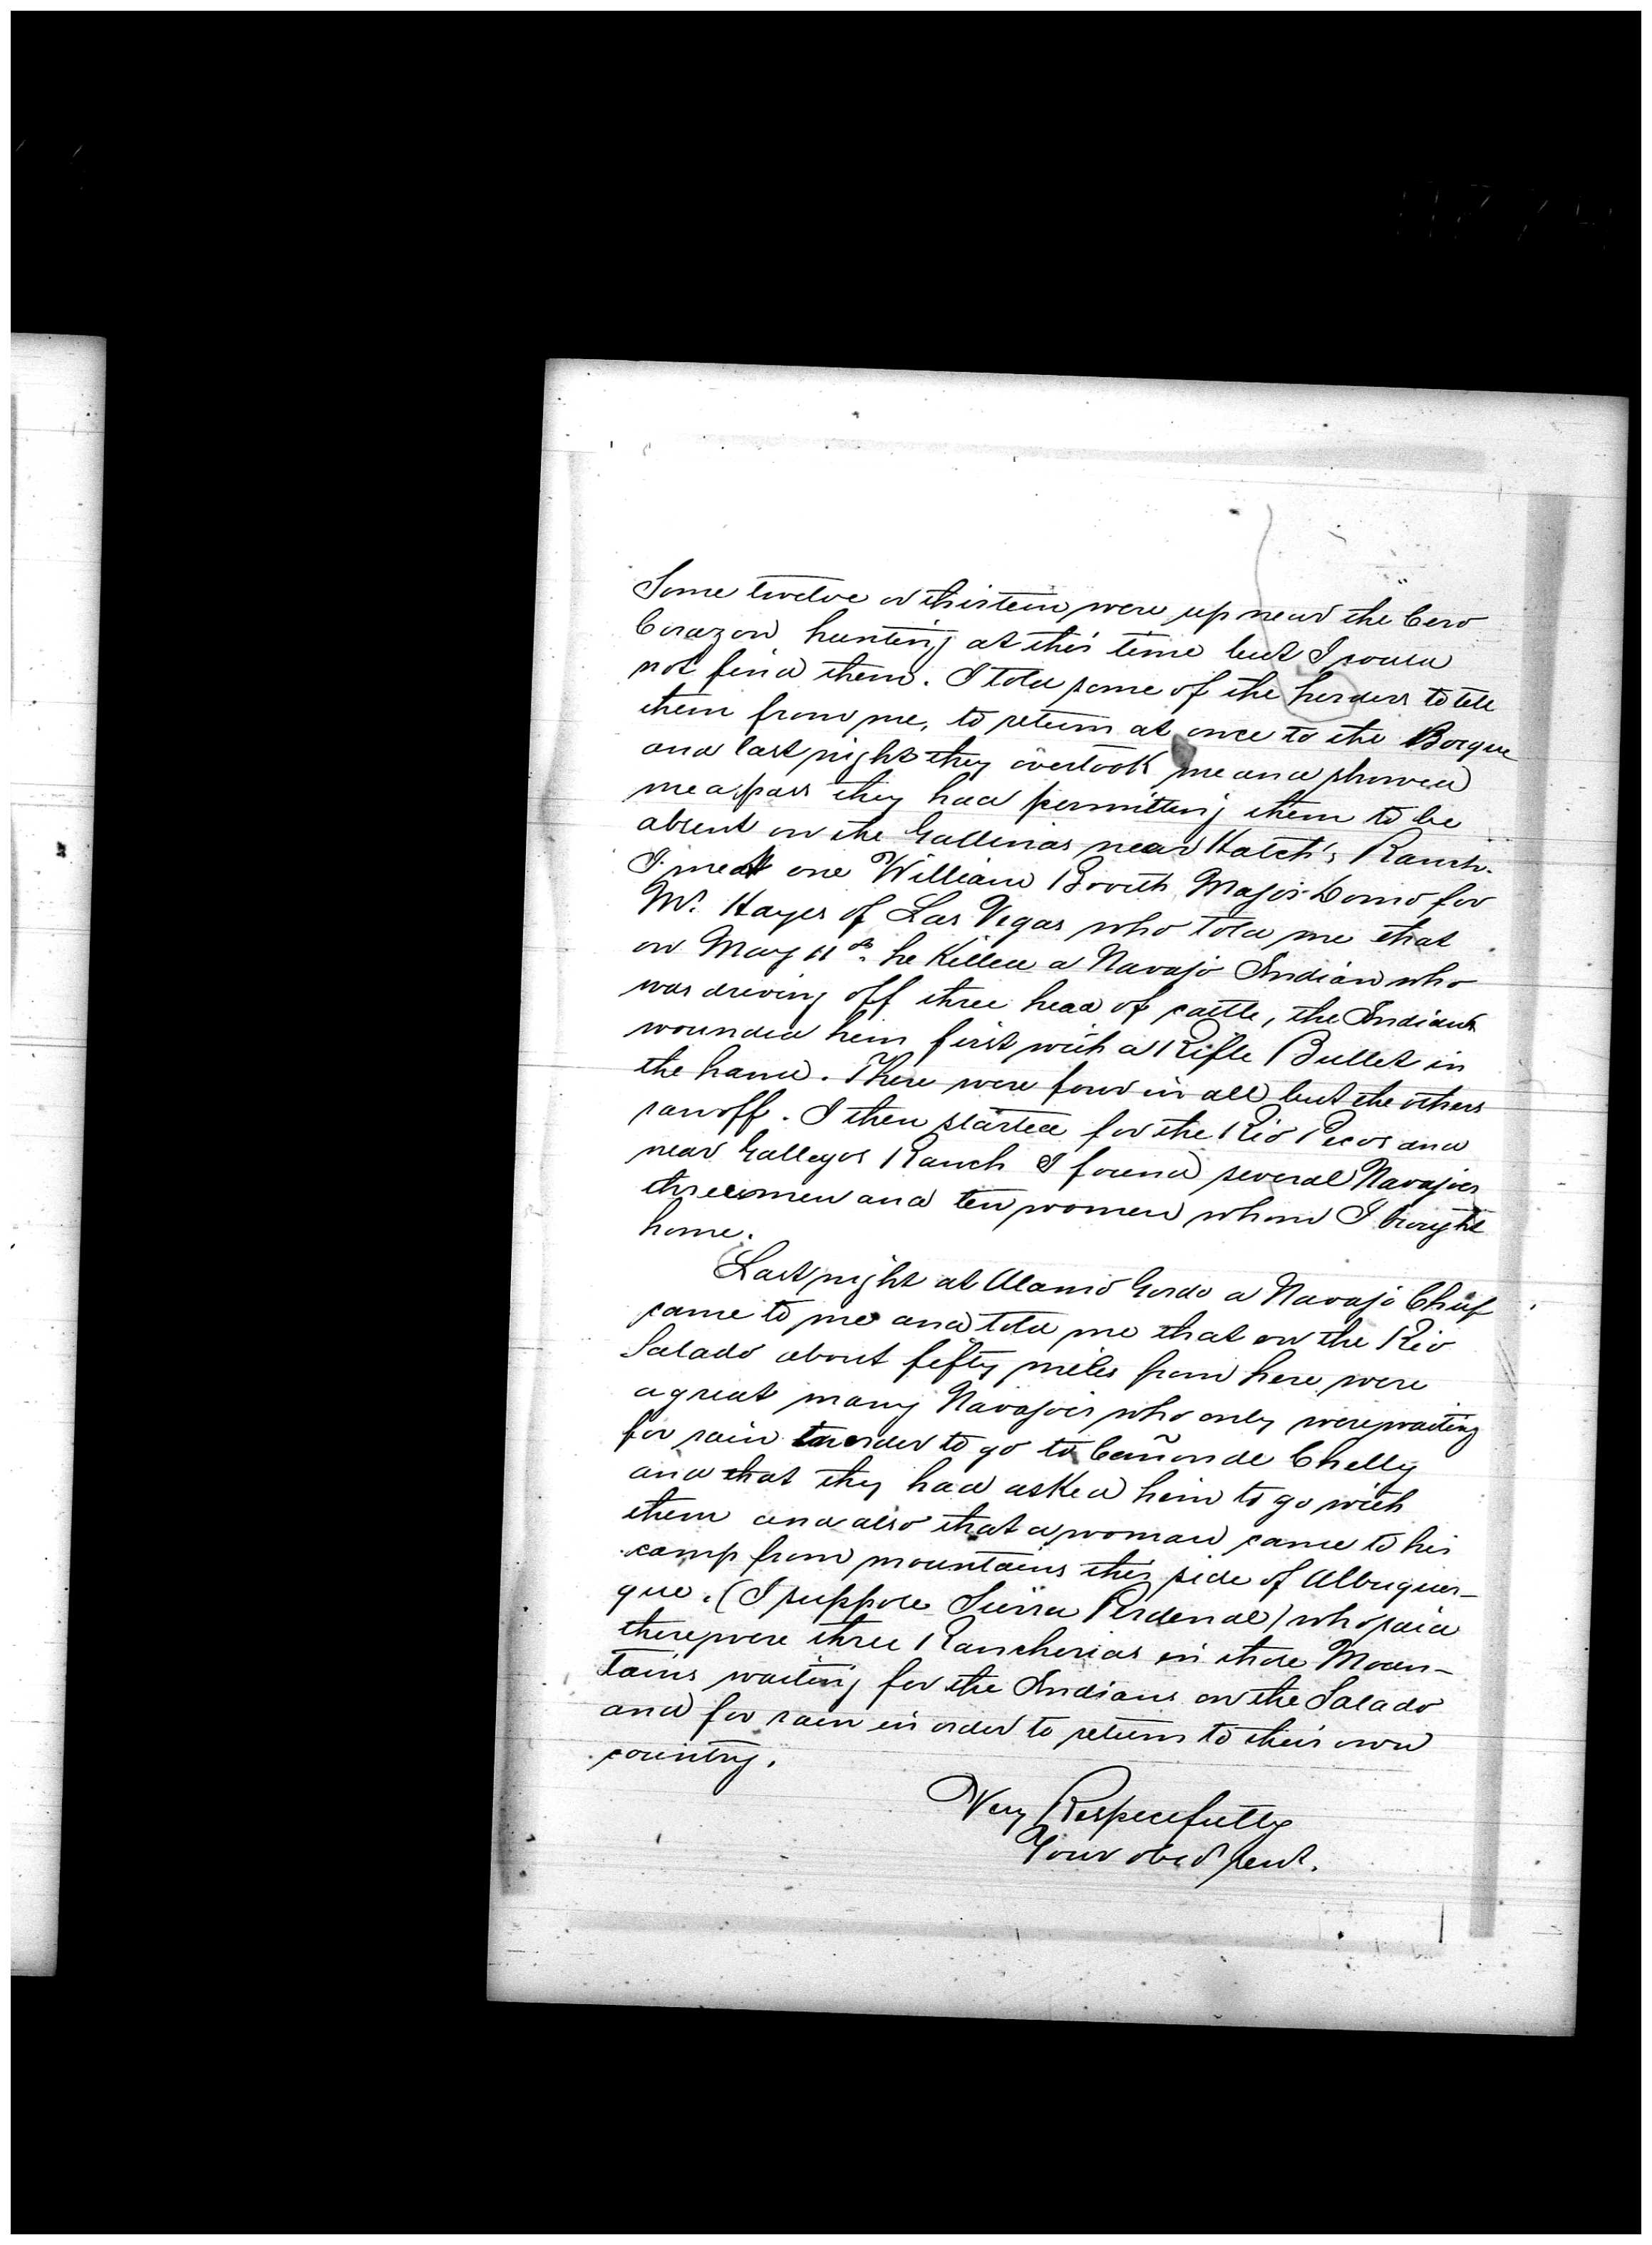 Some twelve or thirteen were up near the Cero
Corazon hunting at this time but I could
not find them. I told some of the herders to tell
them from me, to return at once to the Bosque
and last night they overtook me and showed
me a pass they had permitting them to be
absent on the Gallinas near Hatch's Ranch.
I met one William Booth Major Domo for
Mr. Hayes of Las Vegas who told me that
on May 11th he Killed a Navajo Indian who
was driving off three head of cattle, the Indian
wounded him first with a Rifle Bullet in
the hand. There were four in all but the others
ran off. I then started for the Rio Pecos and
near Gallegos Ranch I found several Navajoes
three men and ten women whom I brought
home.
Last night at Alamo Gordo a Navajo Chief
came to me and told me that on the Rio
Salado about fifty miles from here were
a great many Navajoes who only were waiting
for rain in order to go to Cañon de Chelly
and that they had asked him to go with
them and also that a woman came to his
camp from mountains this side of Albuquer-
que. (I suppose Sierra Perdenal) who said
there were three Rancherias in those Moun-
tains waiting for the Indians on the Salado
and for rain in order to return to their own
country.
Very Respectfully
Your obed servt.